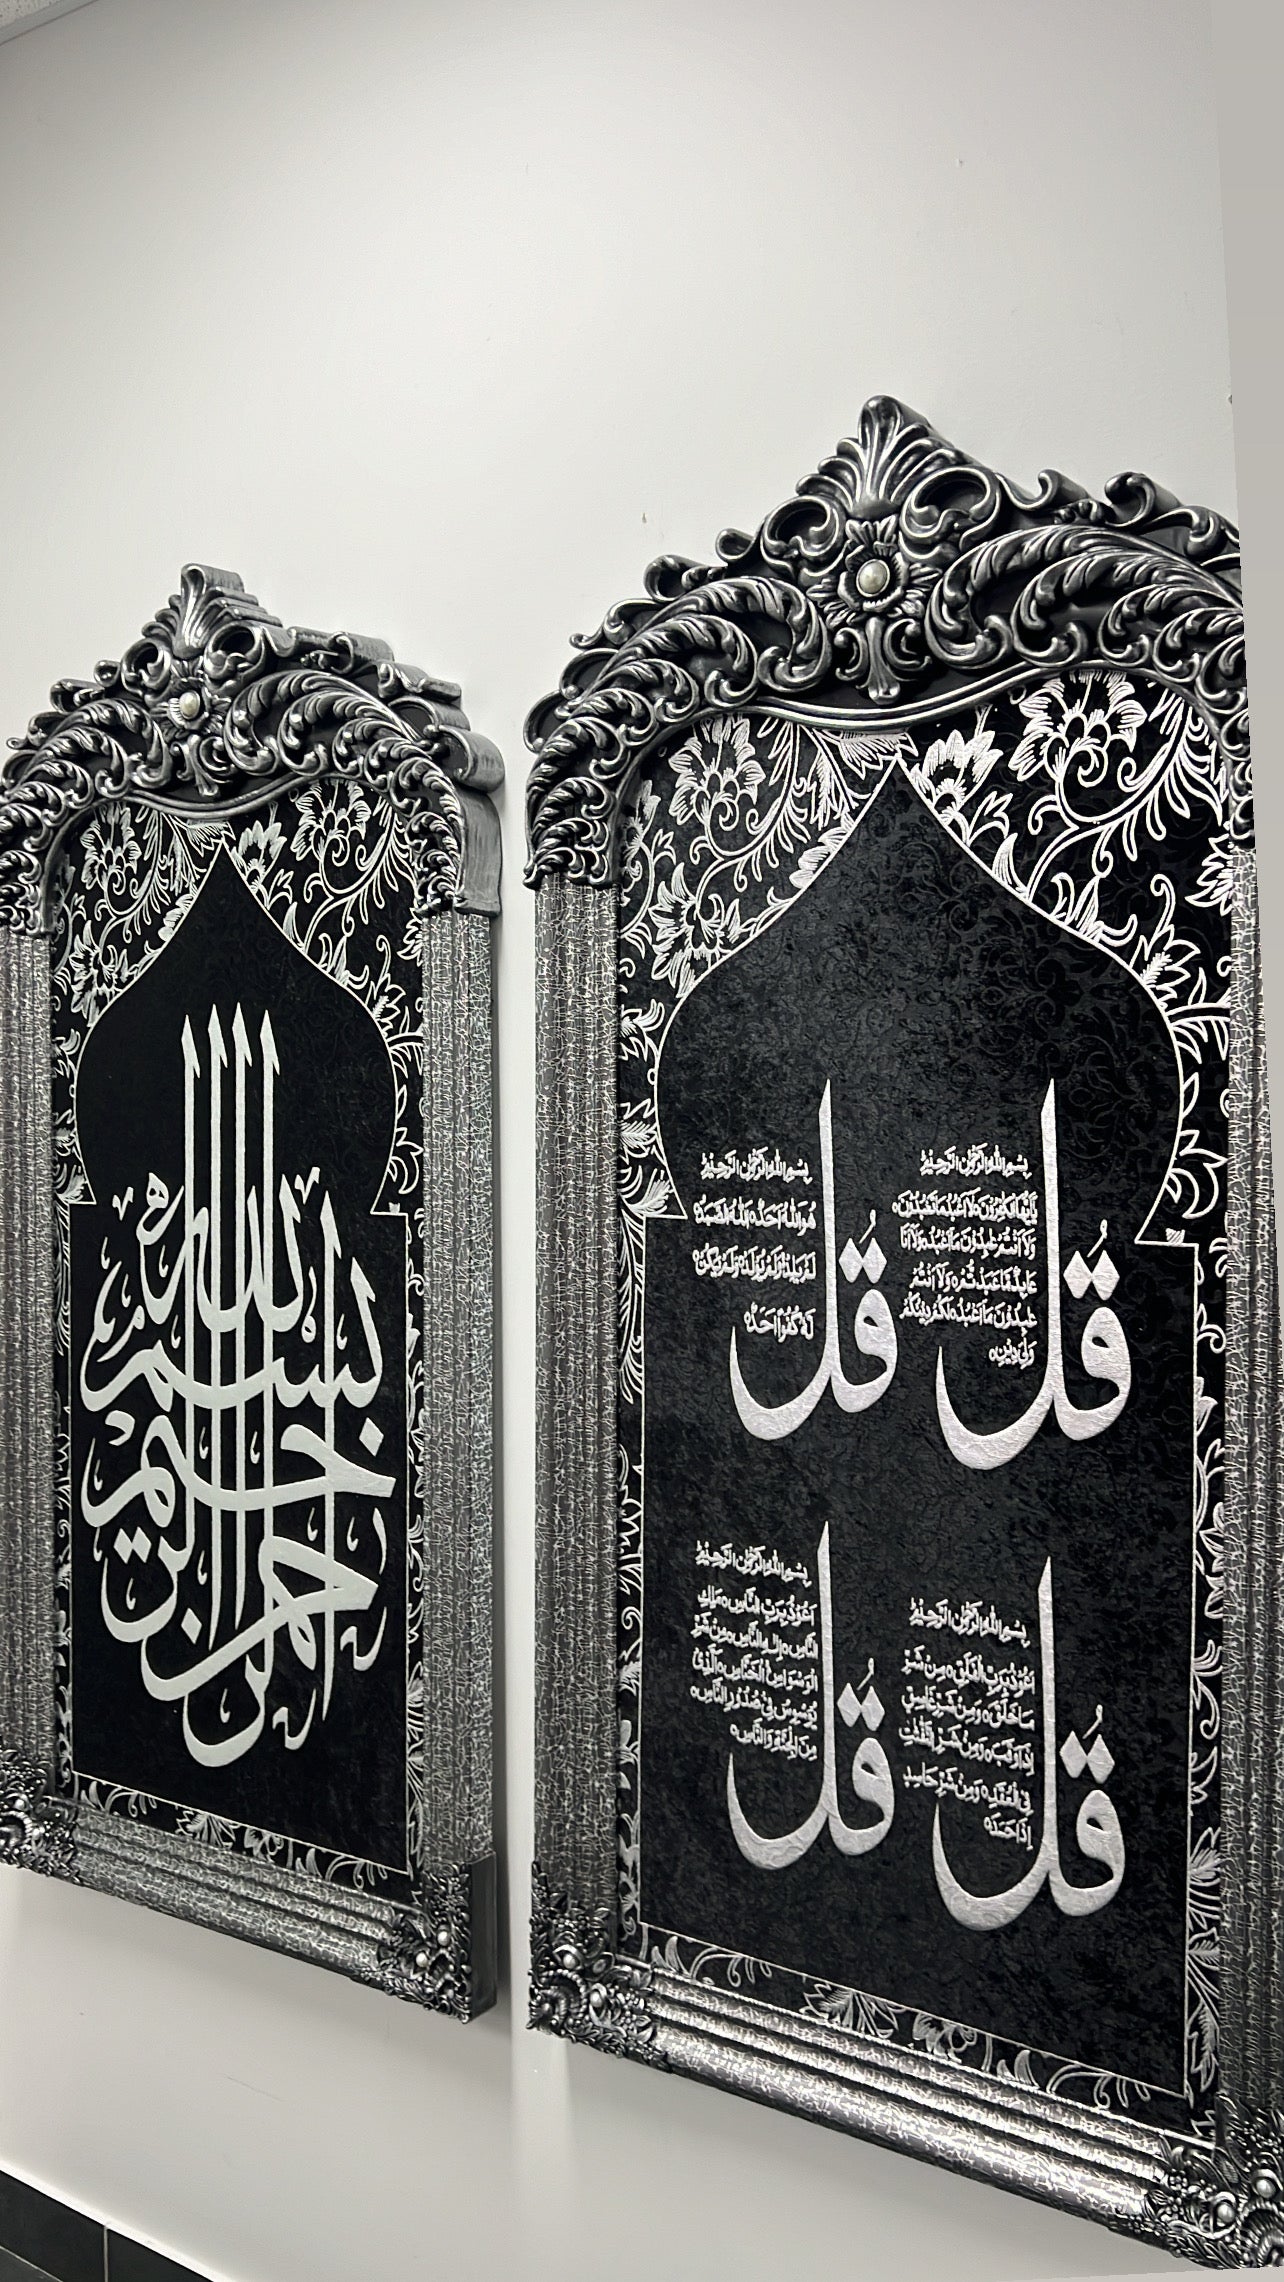 بسم الله الرحمن الرحيم
قُل
بِسْمِ اللهِ الرَّحْمٰنِ الرَّحِيْمِ
يٰٓاَيُّهَا الْكٰفِرُوْنَ ۙ لَآ اَعْبُدُ مَا تَعْبُدُوْنَ ۙ
وَلَآ اَنْتُمْ عٰبِدُوْنَ مَآ اَعْبُدُ ۚ وَلَآ اَنَا
عَابِدٌ مَّا عَبَدْتُّمْ ۙ وَلَآ اَنْتُمْ
عٰبِدُوْنَ مَآ اَعْبُدُ ۭ لَكُمْ دِيْنُكُمْ
وَلِيَ دِيْنِ
قُل
بِسْمِ اللهِ الرَّحْمٰنِ الرَّحِيْمِ
هُوَ اللهُ اَحَدٌ ۚ اَللهُ الصَّمَدُ ۚ
لَمْ يَلِدْ ۙ وَلَمْ يُوْلَدْ ۙ وَلَمْ يَكُنْ
لَّهٗ كُفُوًا اَحَدٌ
قُل
بِسْمِ اللهِ الرَّحْمٰنِ الرَّحِيْمِ
اَعُوْذُ بِرَبِّ الْفَلَقِ ۙ مِنْ شَرِّ
مَا خَلَقَ ۙ وَمِنْ شَرِّ غَاسِقٍ
اِذَا وَقَبَ ۙ وَمِنْ شَرِّ النَّفّٰثٰتِ
فِي الْعُقَدِ ۙ وَمِنْ شَرِّ حَاسِدٍ
اِذَا حَسَدَ
قُل
بِسْمِ اللهِ الرَّحْمٰنِ الرَّحِيْمِ
اَعُوْذُ بِرَبِّ النَّاسِ ۙ مَلِكِ
النَّاسِ ۙ اِلٰهِ النَّاسِ ۙ مِنْ شَرِّ
الْوَسْوَاسِ الْخَنَّاسِ ۙ الَّذِيْ
يُوَسْوِسُ فِيْ صُدُوْرِ النَّاسِ ۙ
مِنَ الْجِنَّةِ وَالنَّاسِ